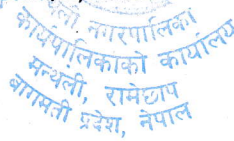 मन्थली नगरपालिका
कार्यपालिकाको कार्यालय
मन्थली, रामेछाप
बागमती प्रदेश, नेपाल